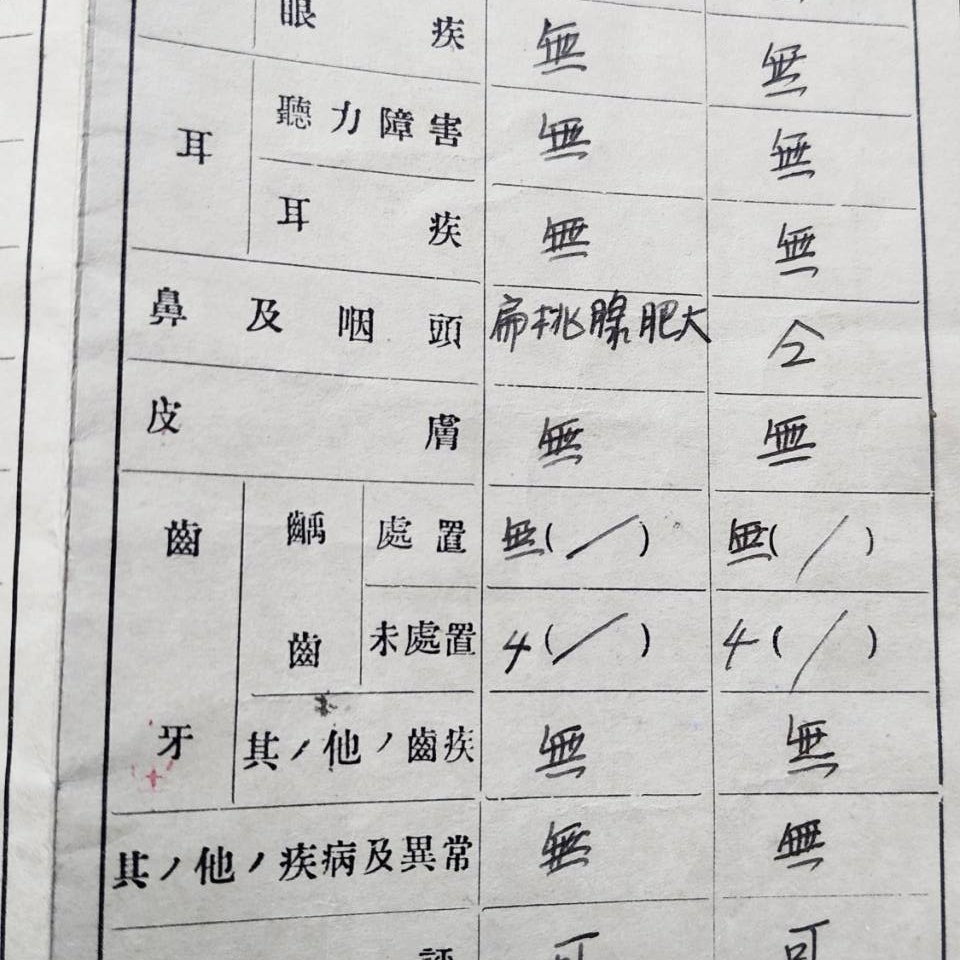 眼疾 無 無
耳 聽力障害 無 無
耳疾 無 無
鼻及咽頭 扁桃腺肥大 仝
皮膚 無 無
齒牙 齲齒 處置 無(／) 無(／)
未處置 4(／) 4(／)
其ノ他ノ齒疾 無 無
其ノ他ノ疾病及異常 無 無
評 可 可